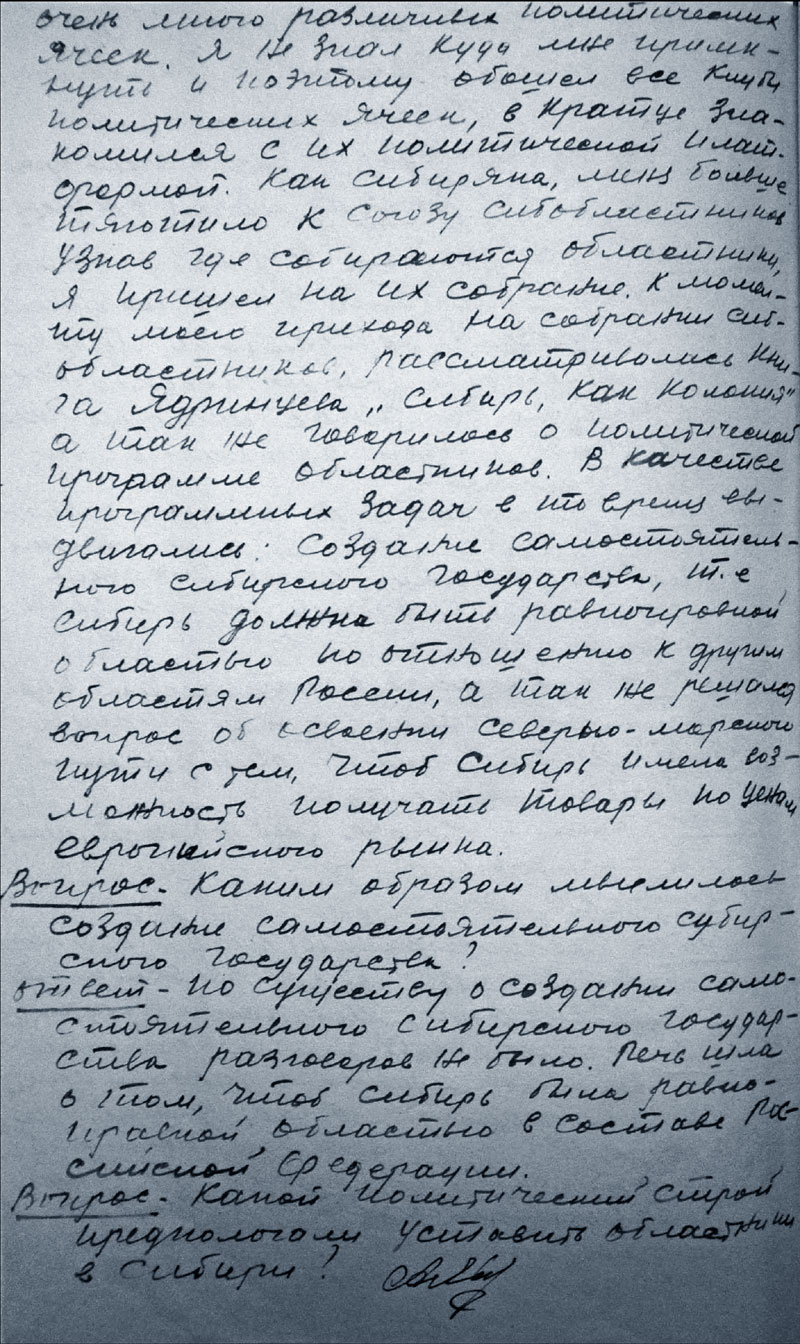 очень много различных политических
ячеек. Я не знал куда мне примк-
нуть и поэтому обошел все клубы
политических ячеек, в кратце зна-
комился с их политической плат-
формой. Как сибиряка, меня больше
тяготило к союзу сибобластников
Узнав где собираются областники,
я пришел на их собрание. К момен-
ту моего прихода на собрании сиб-
областников, рассматривалась кни-
га Ядринцева „Сибирь, как колония"
а так же говорилось о политической
программе областников. В качестве
программных задач в то время вы-
двигались: создание самостоятель-
ного сибирского государства, т.е
Сибирь должна быть равноправной
областью по отношению к другим
областям России, а так же решался
вопрос об освоении северно-морского
пути с тем, чтоб Сибирь имела воз-
можность получать товары по ценам
европейского рынка.
Вопрос - Каким образом мыслилось
создание самостоятельного субир-
ского государства?
ответ - По существу о создании само-
стоятельного сибирского государ-
ства разговоров не было. Речь шла
о том, чтоб Сибирь была равно-
правной областью в составе Рос-
сийской Федерации.
Вопрос - Какой политический строй
предпологали уставить областники
в Сибири?